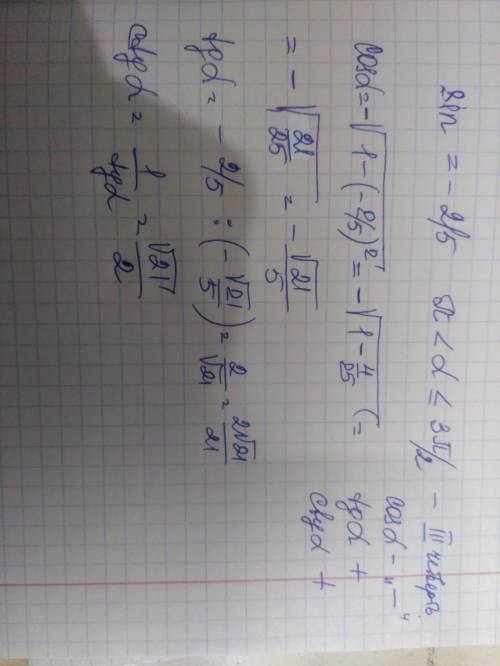 sin = - 2/5 π < α ≤ 3π/2 - III четверть
cosα - "-"
tgα +
ctgα +
cosα = -√(1-(-2/5)²) = -√(1 - 4/25) (=
= - √(21/25) = - √21/5
tgα = - 2/5 : (- √21/5) = 2/√21 = 2√21/21
ctgα = 1/tgα = √21/2